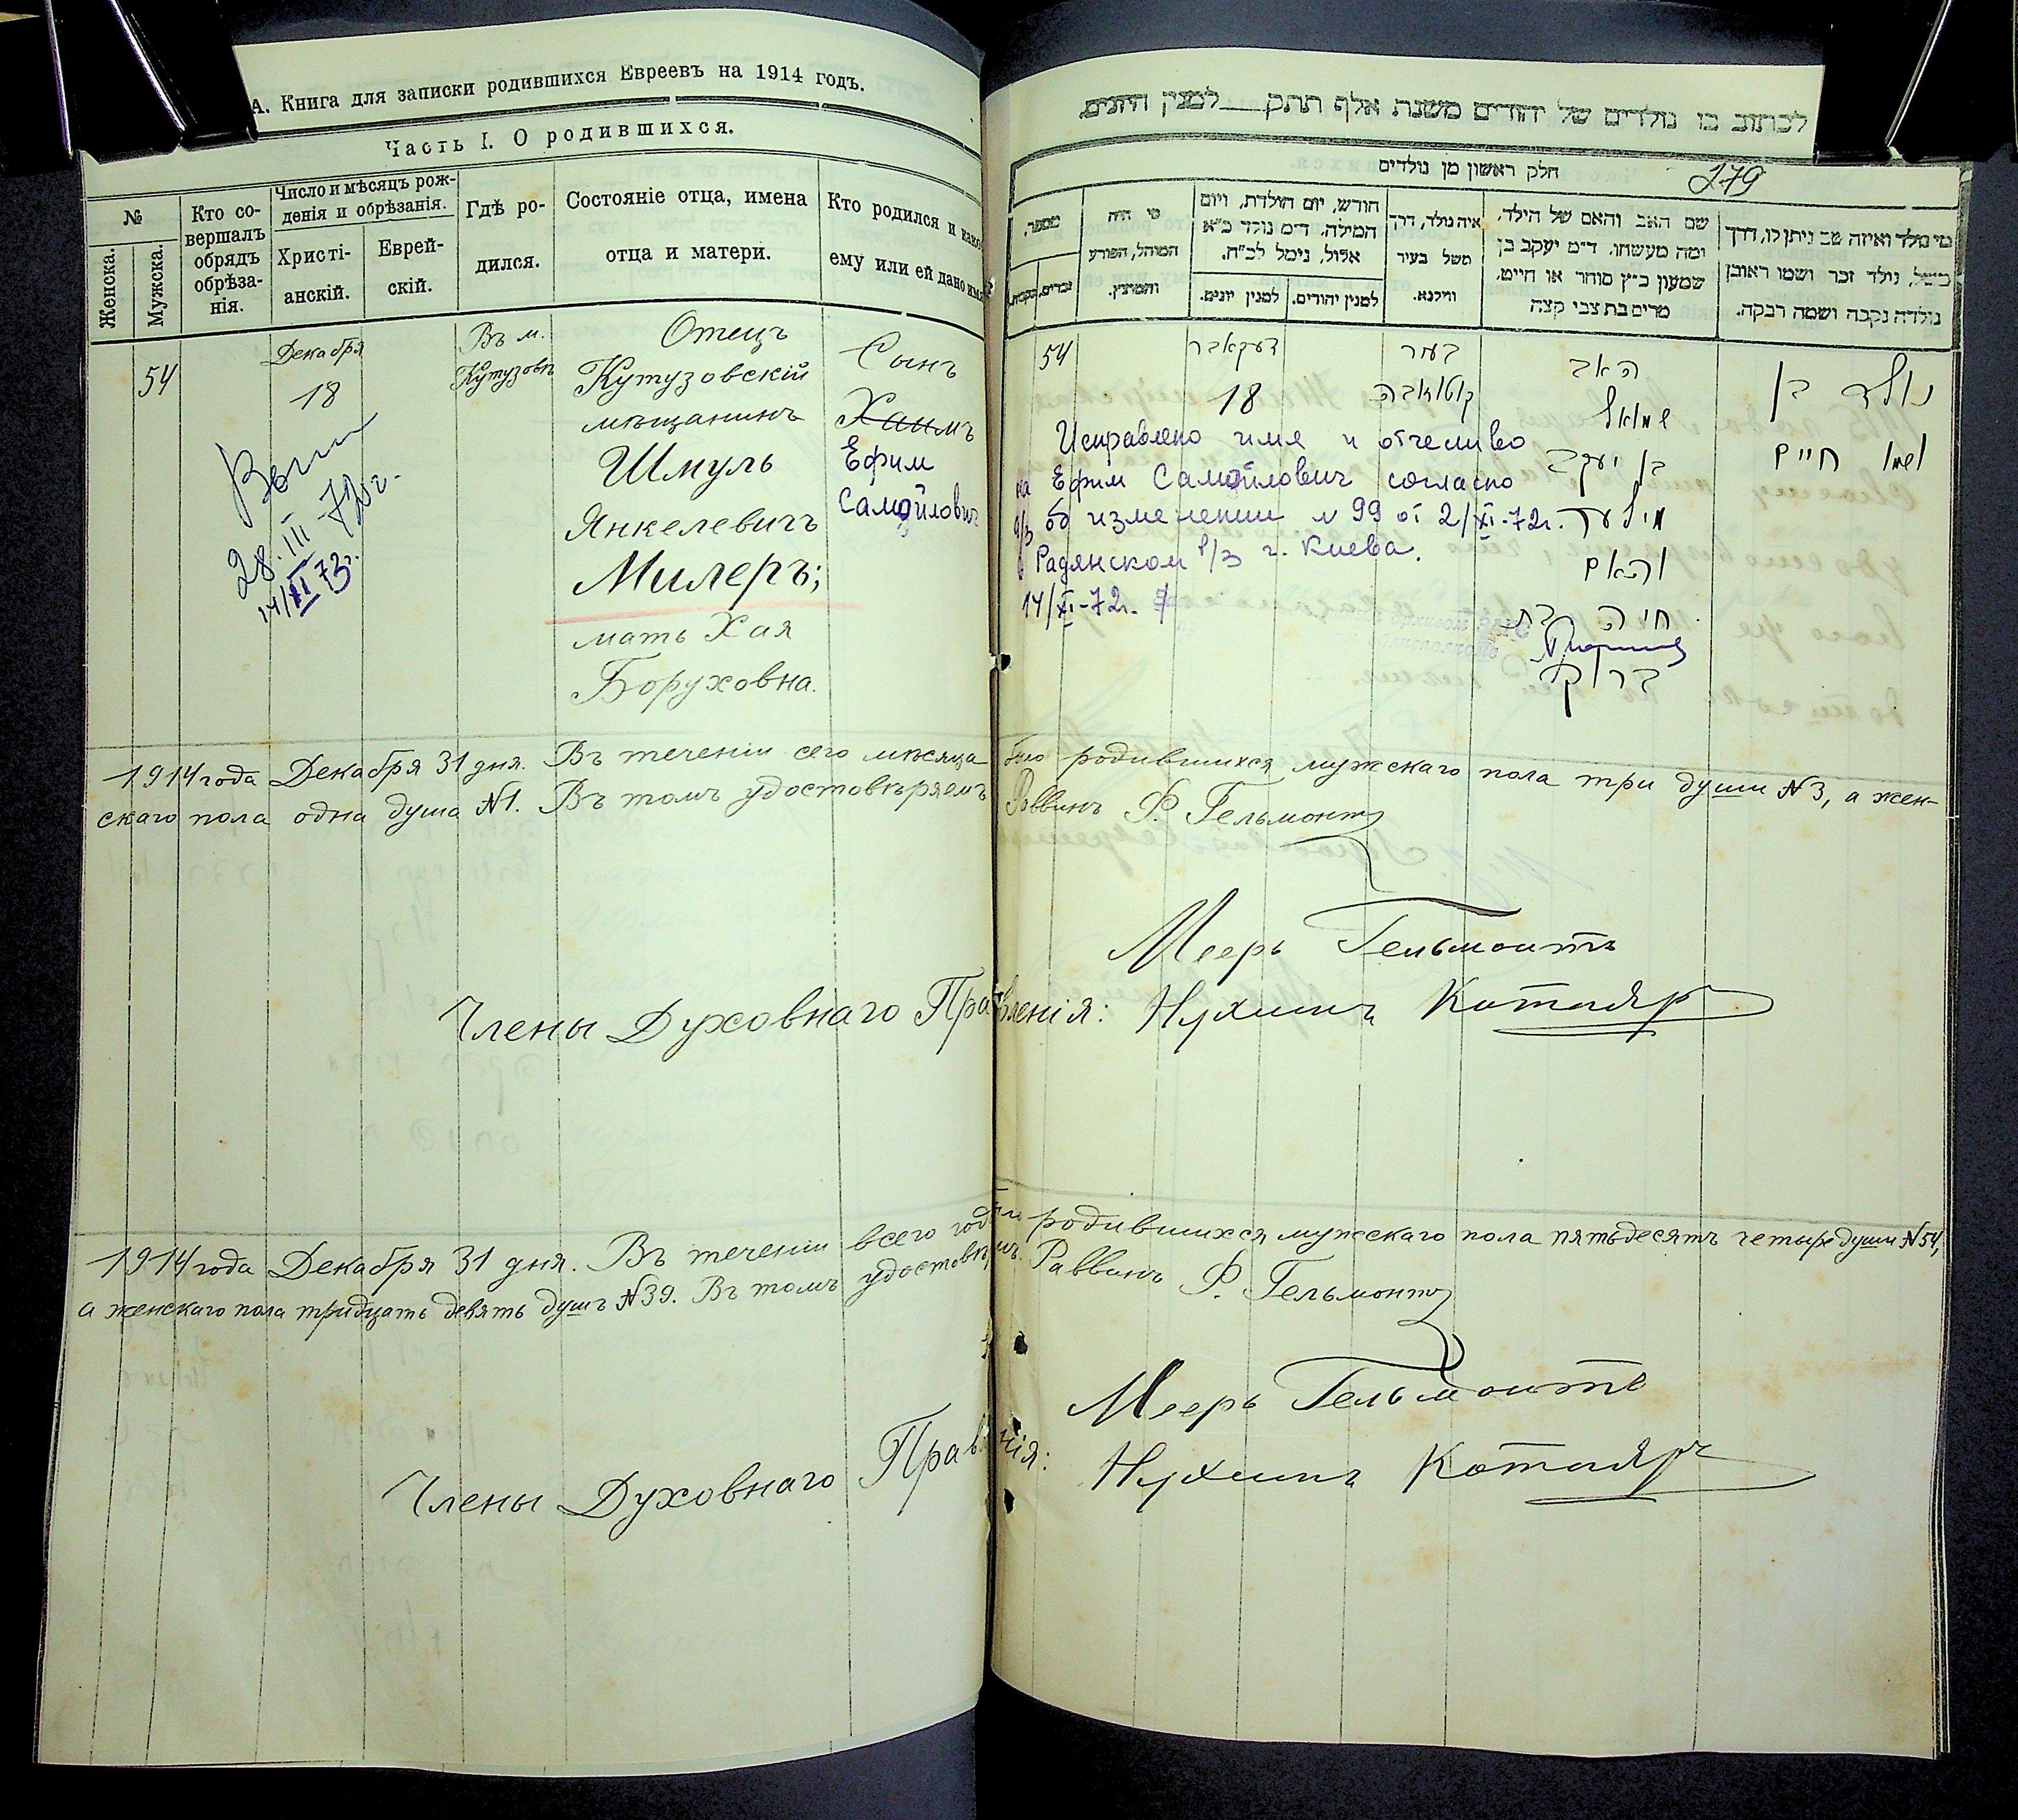 А. Книга для записки родившихся Евреевъ на 1914 годъ.
Часть I. О родившихся.
№
Женска.
Мужска.
Кто со-
вершалъ
обрядъ
обрѣза-
нія.
Число и мѣсяцъ рож-
денія и обрѣзанія.
Христі-
анскій.
Еврей-
скій.
Гдѣ ро-
дился.
Состояніе отца, имена
отца и матери.
Кто родился и како
ему или ей дано имя
54
Декабря
18
Въ м.
Кутузовъ
Отецъ
Кутузовскій
мѣщанинъ
Шмуль
Янкелевичъ
Милеръ;
мать Хая
Боруховна.
Сынъ
Хаимъ
Ефим
Самойлович
28.III-72г.
14/XI 73г.
לכתוב בו נולדים של יהודים משנת אלף תתק למנין היונים.
חלק ראשון מן נולדים
279
מספר,
זכרים,
נקבות,
מי היה
המוהל, הפורע
והמוצץ.
חודש, יום הולדת, ויום
המילה. ד״מ נולד כ״א
אלול, נימל לכ״ח.
למנין יונים.
למנין יהודים.
איה נולד, דרך
משל בעיר
ווילנא.
שם האב והאם של הילד,
ומה מעשהו. ד״מ יעקב בן
שמעון כ״ץ סוחר או חייט,
מרים בת צבי קצה
מי נולד ואיזה שם ניתן לו, דרך
משל, נולד זכר ושמו ראובן
נולדה נקבה ושמה רבקה.
54
דעקאבר
18
בעיר
האב
שמואל
בן יעקב
מילער
והאם
חיה בת
ברוך
נולד בן
ושמו חיים
Исправлено имя и отчество
на Ефим Самойлович согласно
а/з об изменении N 99 от 2/XI-72г.
Радянском р/з г. Киева.
14/XI-72г.
1914 года Декабря 31 дня. Въ теченіи сего мѣсяца было родившихся мужскаго пола три души №3, а жен-
скаго пола одна душа №1. Въ томъ удостовѣряемъ Раввинъ Ф. Гельмонтъ
Мееръ Гельмонтъ
Члены Духовнаго Правленія: Нухимъ Котляръ
1914 года Декабря 31 дня. Въ теченіи всего года было родившихся мужскаго пола пятьдесятъ четыре души №54,
а женскаго пола тридцать девять душъ №39. Въ томъ удостовѣр. Раввинъ Ф. Гельмонтъ
Мееръ Гельмонтъ
Члены Духовнаго Правленія: Нухимъ Котляръ